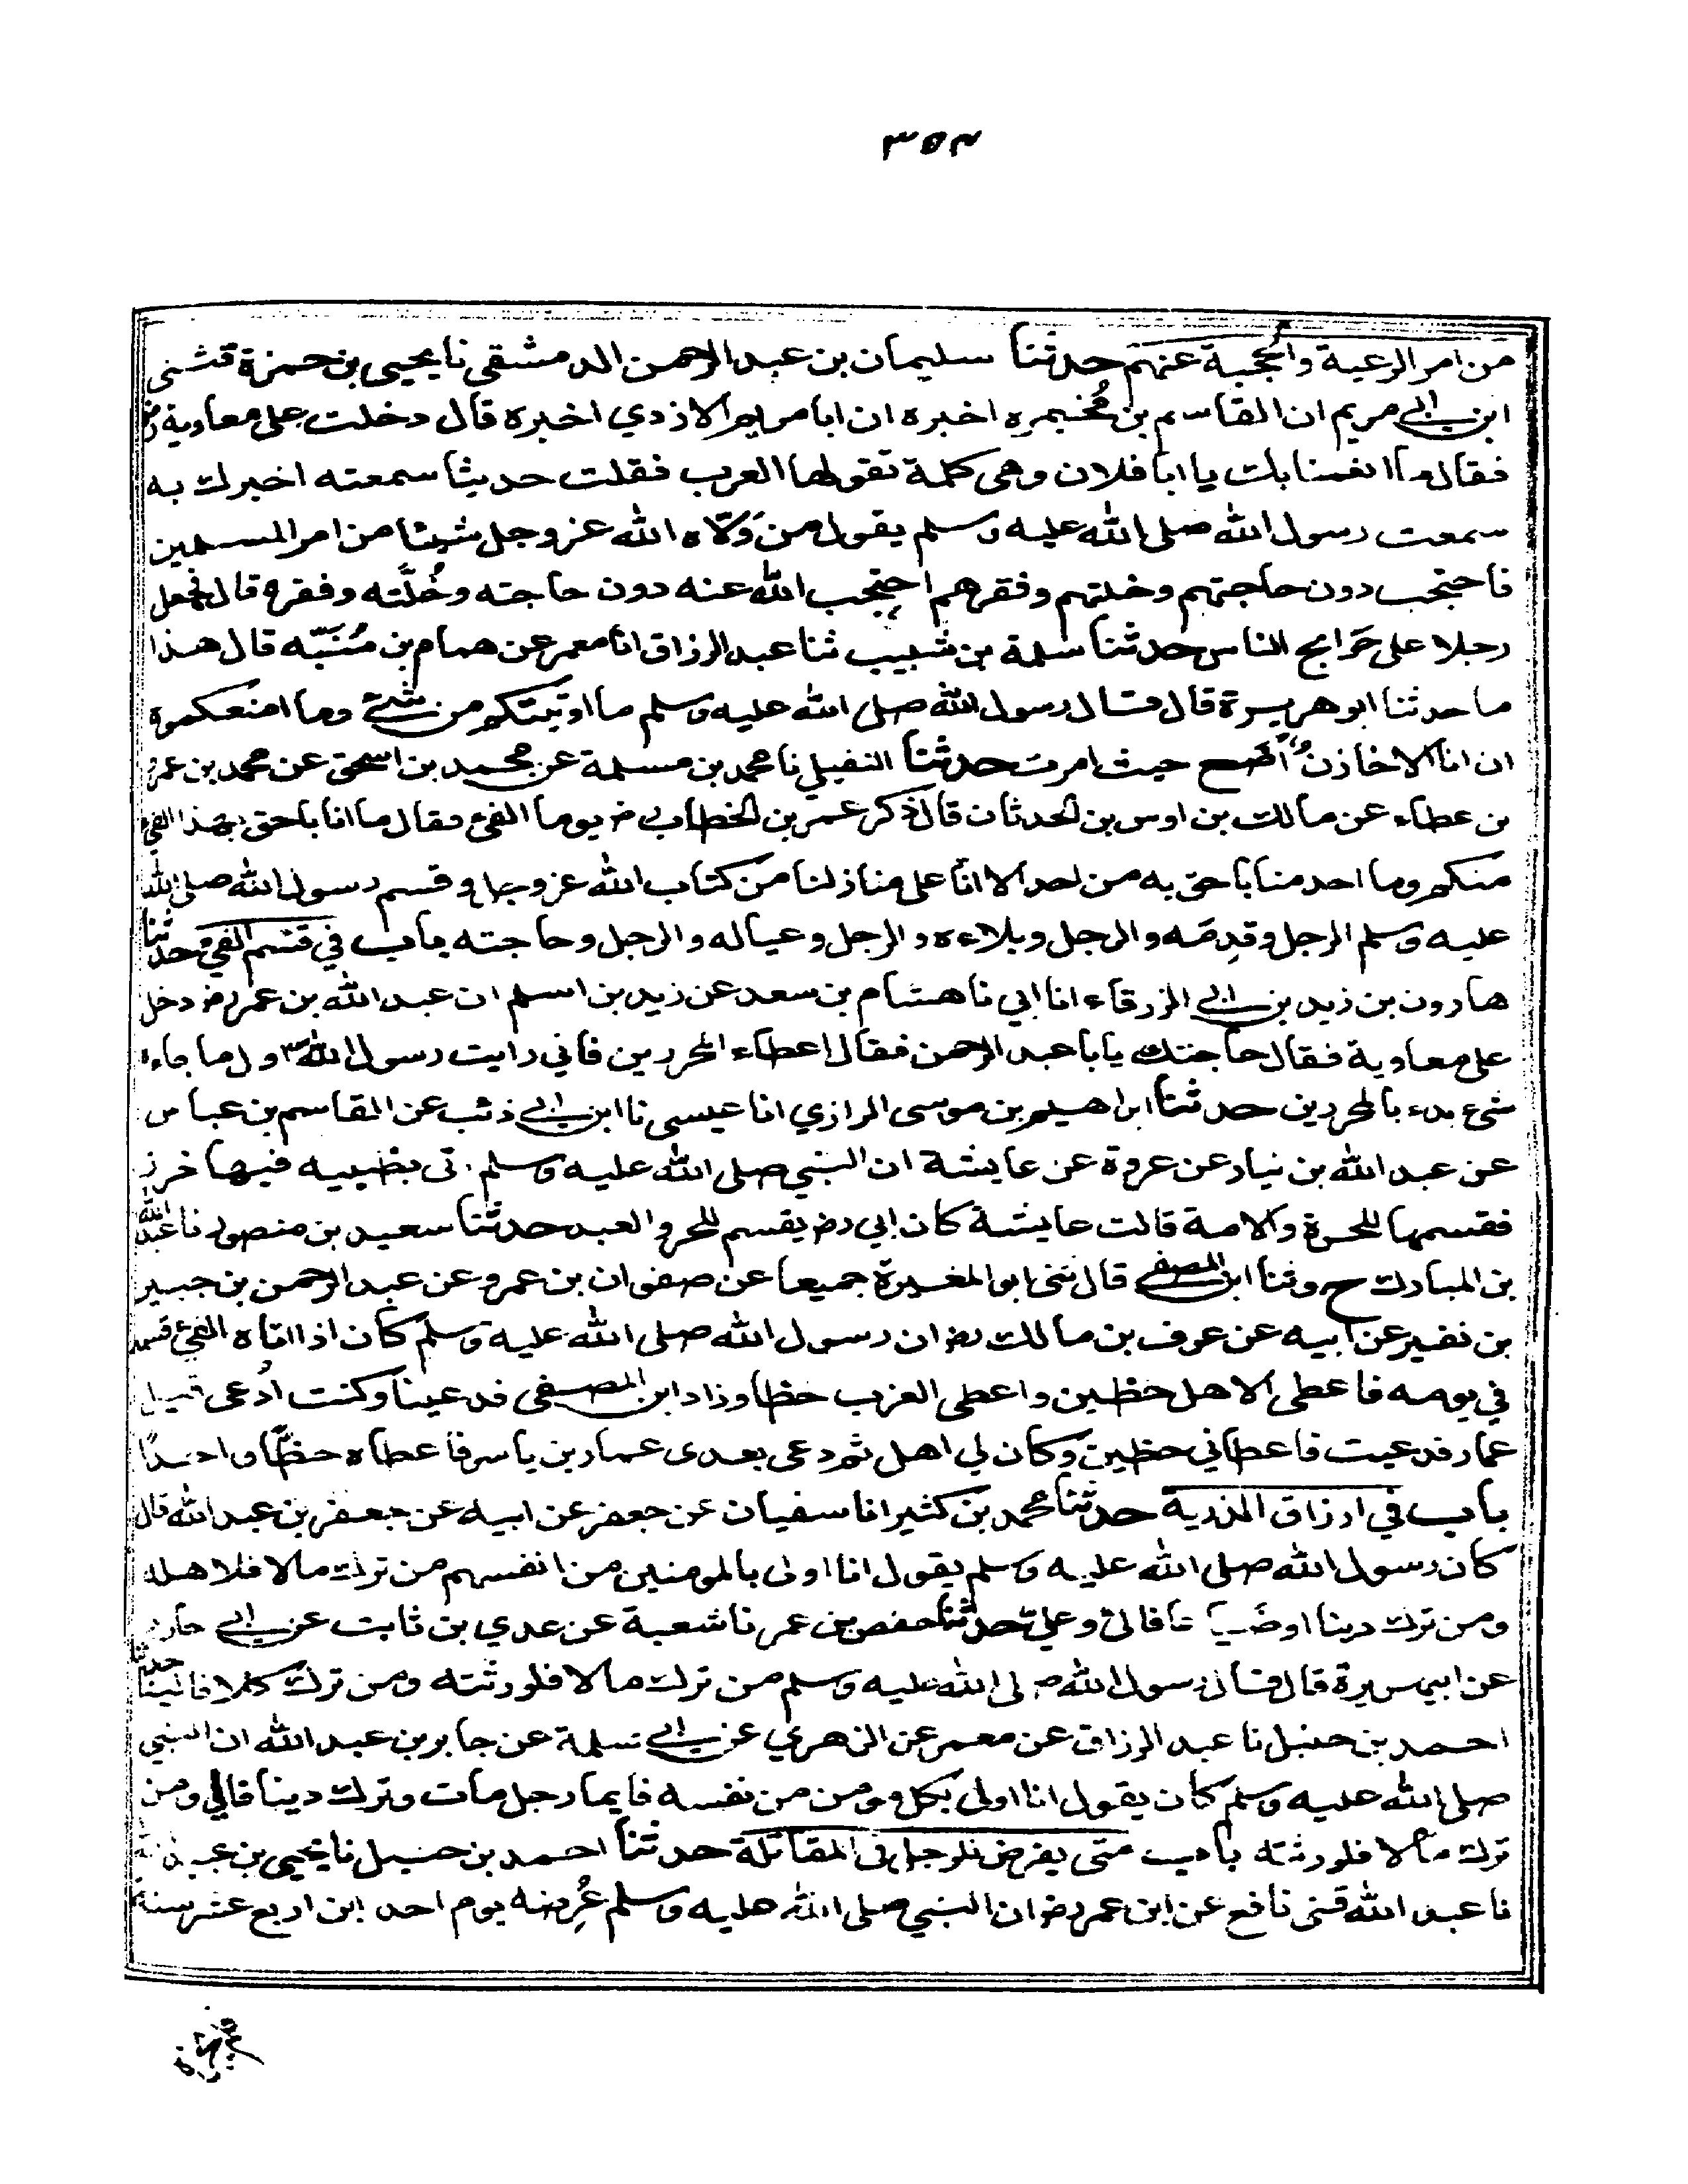 ٣٥٢
من امر الرعية والحجبة عنهم حدثنا سليمان بن عبد الرحمن الدمشقي نا يحيى بن حمزة قثنى
ابن ابي مريم ان القاسم بن مُخيمره اخبره ان ابا مريم الازدي اخبره قال دخلت على معاوية رض
فقال ما انعمنا بك يا ابا فلان وهى كلمة تقولها العرب فقلت حديثا سمعته اخبرك به
سمعت رسول الله صلى الله عليه وسلم يقول من وَلّاه الله عز وجل شيئا من امر المسلمين
فاحتجب دون حاجتهم وخلتهم وفقرهم احتجب الله عنه دون حاجته وخُلَّته وفقره قال فجعل
رجلا على حَوايج الناس حدثنا سلمة بن شبيب ثنا عبد الرزاق انا معمر عن همام بن مُنَبّه قال هذا
ما حدثنا ابو هريرة قال قال رسول الله صلى الله عليه وسلم ما اوتيتكم من شيء وما امنعكموه
ان انا الا خازنٌ اَضَع حيث امرت حدثنا النفيلي نا محمد بن مسلمة عن محمد بن اسحق عن محمد بن عمرو
بن عطاء عن مالك بن اوس بن الحدثان قال ذكر عمر بن الخطاب رض يوما الفئ فقال ما انا باحق بهذا الفئ
منكم وما احد منا باحق به من احد الا انا على منازلنا من كتاب الله عز وجل وقسم رسول الله صلى الله
عليه وسلم الرجل وقِدمَه والرجل وبلاءه والرجل وعياله والرجل وحاجته باب في قسم الفئ حدثنا
هارون بن زيد بن ابي الزرقاء انا ابي نا هشام بن سعد عن زيد بن اسلم ان عبد الله بن عمر رض دخل
على معاوية فقال حاجتك يا با عبد الرحمن فقال اعطاء المحررين فاني رايت رسول الله ص اول ما جاءه
شئ بدء بالمحررين حدثنا ابراهيم بن موسى الرازي انا عيسى نا ابن ابي ذئب عن القاسم بن عباس
عن عبد الله بن نيار عن عروة عن عايشة ان النبي صلى الله عليه وسلم اتى بظبيه فيها خرز
فقسمها للحرة والامة قالت عايشة كان ابي رض يقسم للحر والعبد حدثنا سعيد بن منصور نا عبد الله
بن المبارك ح وثنا ابن المصفى قال ثنى ابو المغيرة جميعا عن صفوان بن عمرو عن عبد الرحمن بن جبير
بن نفير عن ابيه عن عوف بن مالك رض ان رسول الله صلى الله عليه وسلم كان اذا اتاه الفئ قسمه
في يومه فاعطى الاهل حظين واعطى العزب حظا وزاد ابن المصفى فدعينا وكنت اُدعى قبل
عمار فدعيت فاعطاني حظين وكان لي اهل ثم دعى بعدى عمار بن ياسر فاعطاه حظّا واحدًا
باب في ارزاق الذرية حدثنا محمد بن كثير انا سفيان عن جعفر عن ابيه عن جعفر بن عبد الله قال
كان رسول الله صلى الله عليه وسلم يقول انا اولى بالمومنين من انفسهم من ترك مالا فلاهله
ومن ترك دينا او ضَياعا فالى وعلىّ حدثنا حفص بن عمر نا شعبة عن عدي بن ثابت عن ابي حازم
عن ابي هريرة قال قال رسول الله صلى الله عليه وسلم من ترك مالا فلورثته ومن ترك كلا فالينا حدثنا
احمد بن حنبل نا عبد الرزاق عن معمر عن الزهري عن ابي سلمة عن جابر بن عبد الله ان النبي
صلى الله عليه وسلم كان يقول انا اولى بكل مومن من نفسه فايما رجل مات وترك دينا فالي ومن
ترك مالا فلورثته باب متى يفرض للرجل في المقاتلة حدثنا احمد بن حنبل نا يحيى بن
نا عبد الله قثنى نافع عن ابن عمر رض ان النبي صلى الله عليه وسلم عُرِضه يوم احد ابن اربع عشر سنة